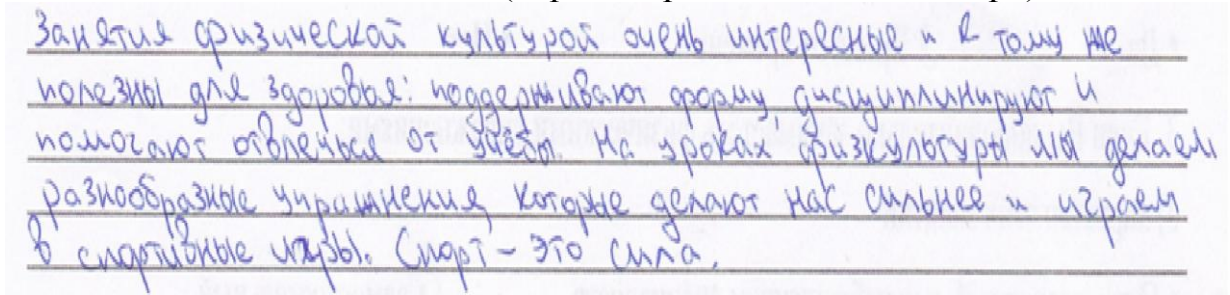 Занятия физической культурой очень интересные и к тому же
полезны для здоровья: поддерживают форму, дисциплинируют и
помогают отвлечься от учёбы. На уроках физкультуры мы делаем
разнообразные упражнения, которые делают нас сильнее и играем
в спортивные игры. Спорт – это сила.